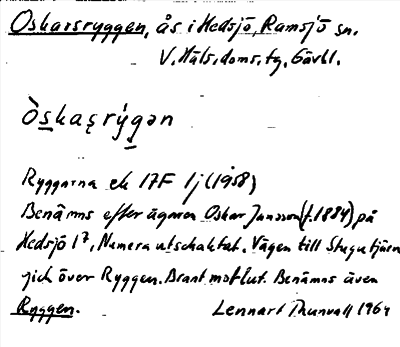 Oskarsryggen, ås i Hedsjö, Ramsjö sn.
V. Häls. doms. tg, Gävbl.
Òskaʂrýgən
Ryggarna ek 17F 1j (1958)
Benämns efter ägaren Oskar Jansson (f. 1884) på
Hedsjö 1², Numera utschaktat. Vägen till Stugutjärn
gick över Ryggen. Brant motlut. Benämns även
Ryggen. Lennart Thunvall 1964